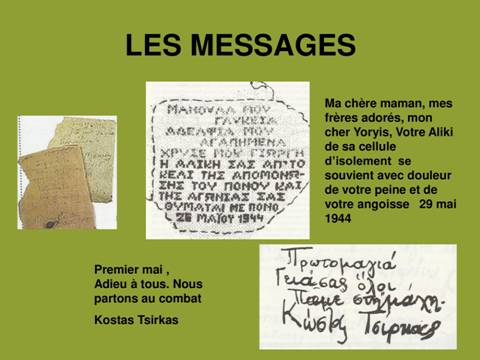 LES MESSAGES
ΜΑΝΟΥΛΑ ΜΟΥ
ΓΛΥΚΕΙΑ
ΑΔΕΛΦΙΑ ΜΟΥ
ΑΓΑΠΗΜΕΝΑ
ΧΡΥΣΕ ΜΟΥ ΓΙΩΡΓΗ
Η ΑΛΙΚΗ ΣΑΣ ΑΠ'ΤΟ
ΚΕΛΙ ΤΗΣ ΑΠΟΜΟΝΩ
ΣΗΣ ΤΟΥ ΠΟΝΟΥ ΚΑΙ
ΤΗΣ ΑΓΩΝΙΑΣ ΣΑΣ
ΘΥΜΑΤΑΙ ΜΕ ΠΟΝΟ
26 ΜΑΪΟΥ 1944
Ma chère maman, mes
frères adorés, mon
cher Yoryis, Votre Aliki
de sa cellule
d'isolement se
souvient avec douleur
de votre peine et de
votre angoisse 29 mai
1944
Premier mai ,
Adieu à tous. Nous
partons au combat
Kostas Tsirkas
Πρωτομαγιά
Γειάσας όλοι
Παμε στη μάχη.
Κώστας Τσιρκας